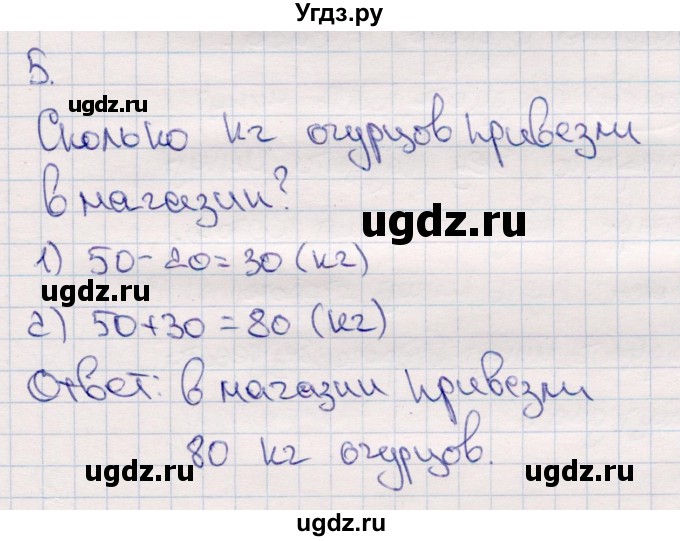 Угдз.ру
5.
ugdz.ru
Сколько кг огурцов привезли
в магазин?
ugdz.ru
1) 50-20=30 (кг)
ugdz.ru
2) 50+30=80 (кг)
ugdz.ru
Ответ: в магазин привезли
80 кг огурцов.
ugdz.ru ugdz.ru
ugdz.ru